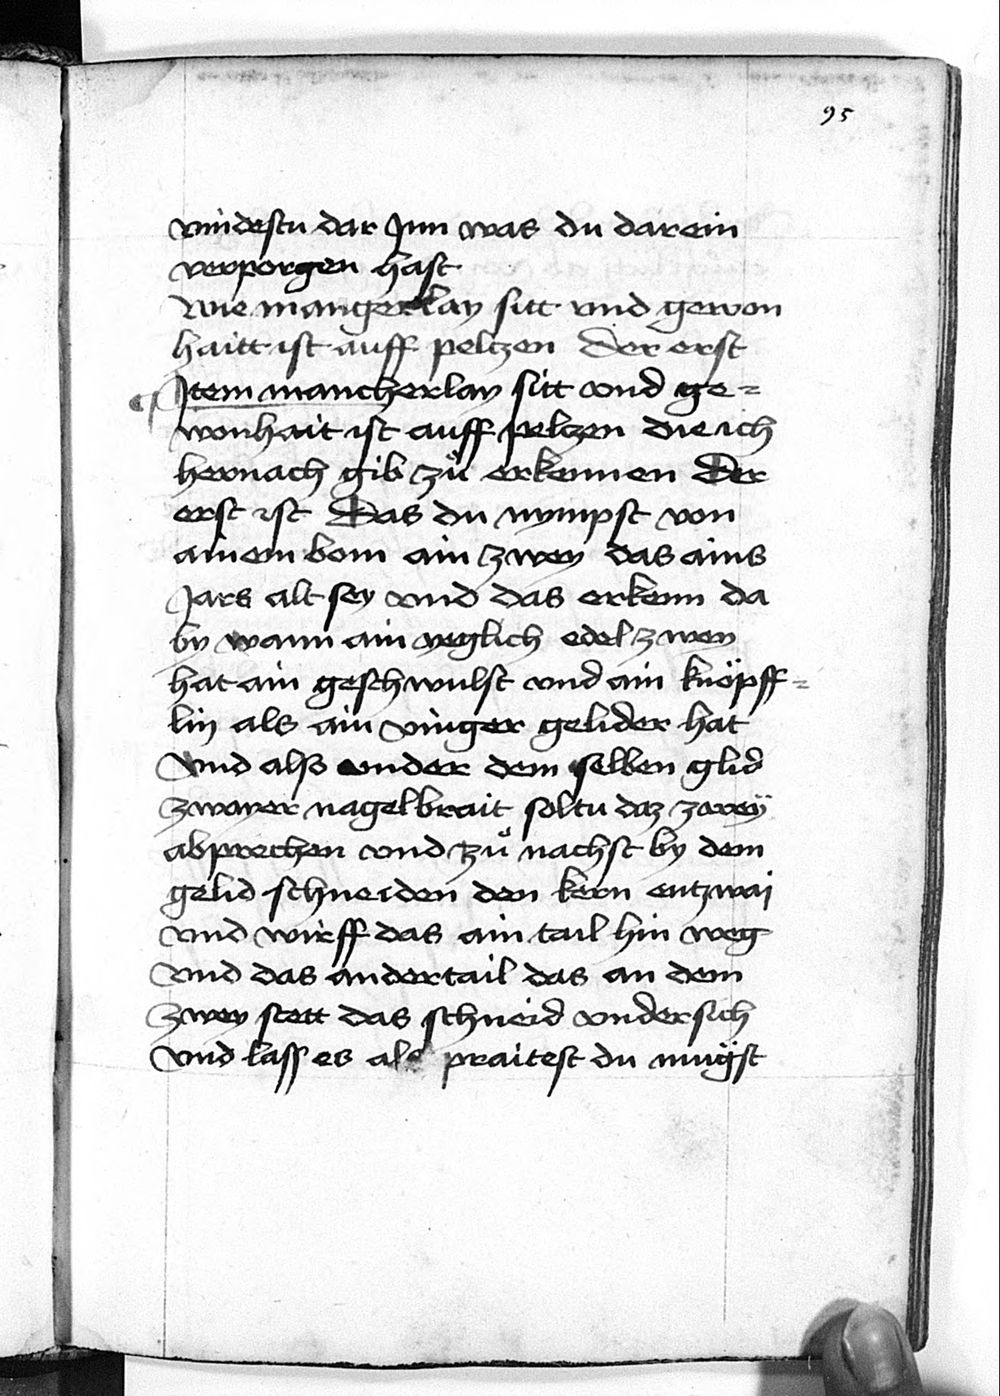 95
vindestu dar Jnn was du darein
verporgen hast
wie mangerlay sitt vnd gewon
haitt ist auff peltzen Der erst
Jtem mancherlay sitt vnd ge=
wonhait ist auff peltzen die ich
hernach gib zů erkennen Der
erst ist Das du nympst von
ainem bom ain zwey das ains
Jars alt sey vnd das erkenn da
by wann ain yeglich edel zwey
hat ain geschwulst vnd ain knöpff=
lin als ain vinger gelider hat
Vnd also vnder dem selben glid
zwayer nagelbrait soltu daz zweÿ
abprechen vnd zů nachst by dem
gelid schneiden den kern entzwai
vnd wirff das ain tail hin weg
vnd das andertail das an dem
zwey stett das schneid vndersich
vnd lass es als praitest du mugst